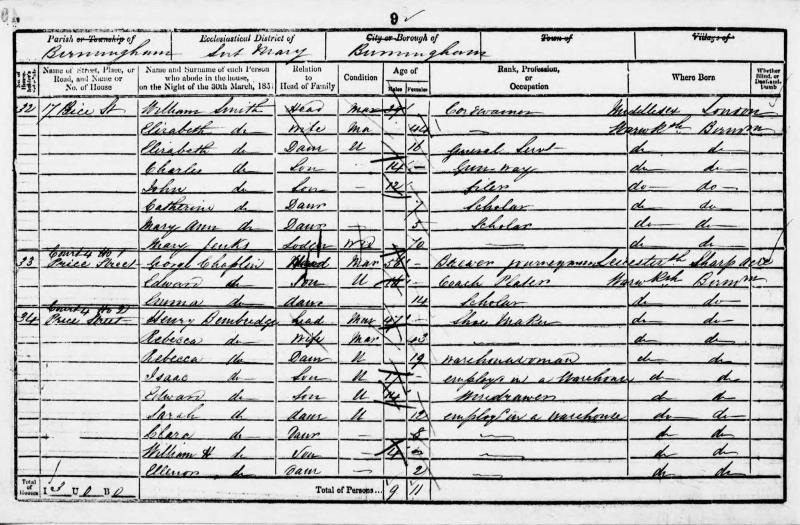 9
Parish or Township of Ecclesiastical District of City or Borough of Town of Village of
Birmingham St Mary Birmingham
No. of House-holder's Schedule Name of Street, Place, or Road, and Name or No. of House Name and Surname of each Person who abode in the house, on the Night of the 30th March, 1851 Relation to Head of Family Condition Age of Males Females Rank, Profession, or Occupation Where Born Whether Blind, or Deaf-and-Dumb
32 17 Price St William Smith Head Mar Cordwainer Middlesex London
Elizabeth do Wife Ma 44 Warwksh Birmm
Elizabeth do Daur U 16 General Servt do do
Charles do Son 14 Gun do do
John do Son 12 Filer do do
Catherine do Daur 7 Scholar do do
Mary Ann do Daur 5 Scholar do do
Mary Jenks Lodger Wid 70 do do
33 Court 4 Ho 1 Price Street George Chaplin Head Mar 38 Brewer journeyman Leicestersh
Edward do Son U Coach Plater Warwksh Birmm
Emma do daur 14 Scholar do do
34 Court 4 Ho 2 Price Street Henry Bembridge Head Mar 47 Shoe Maker do do
Rebecca do Wife Mar do do
Rebecca do Daur U 19 Warehousewoman do do
Isaac do Son U employd in a Warehouse do do
Edward do Son U 14 do do
Sarah do daur U 12 employd in a warehouse do do
Clara do Daur 8 do do
William H do Son 4 do do
Ellenor do Daur 2 do do
Total of Houses I 3 U 0 B 0 Total of Persons... 9 11